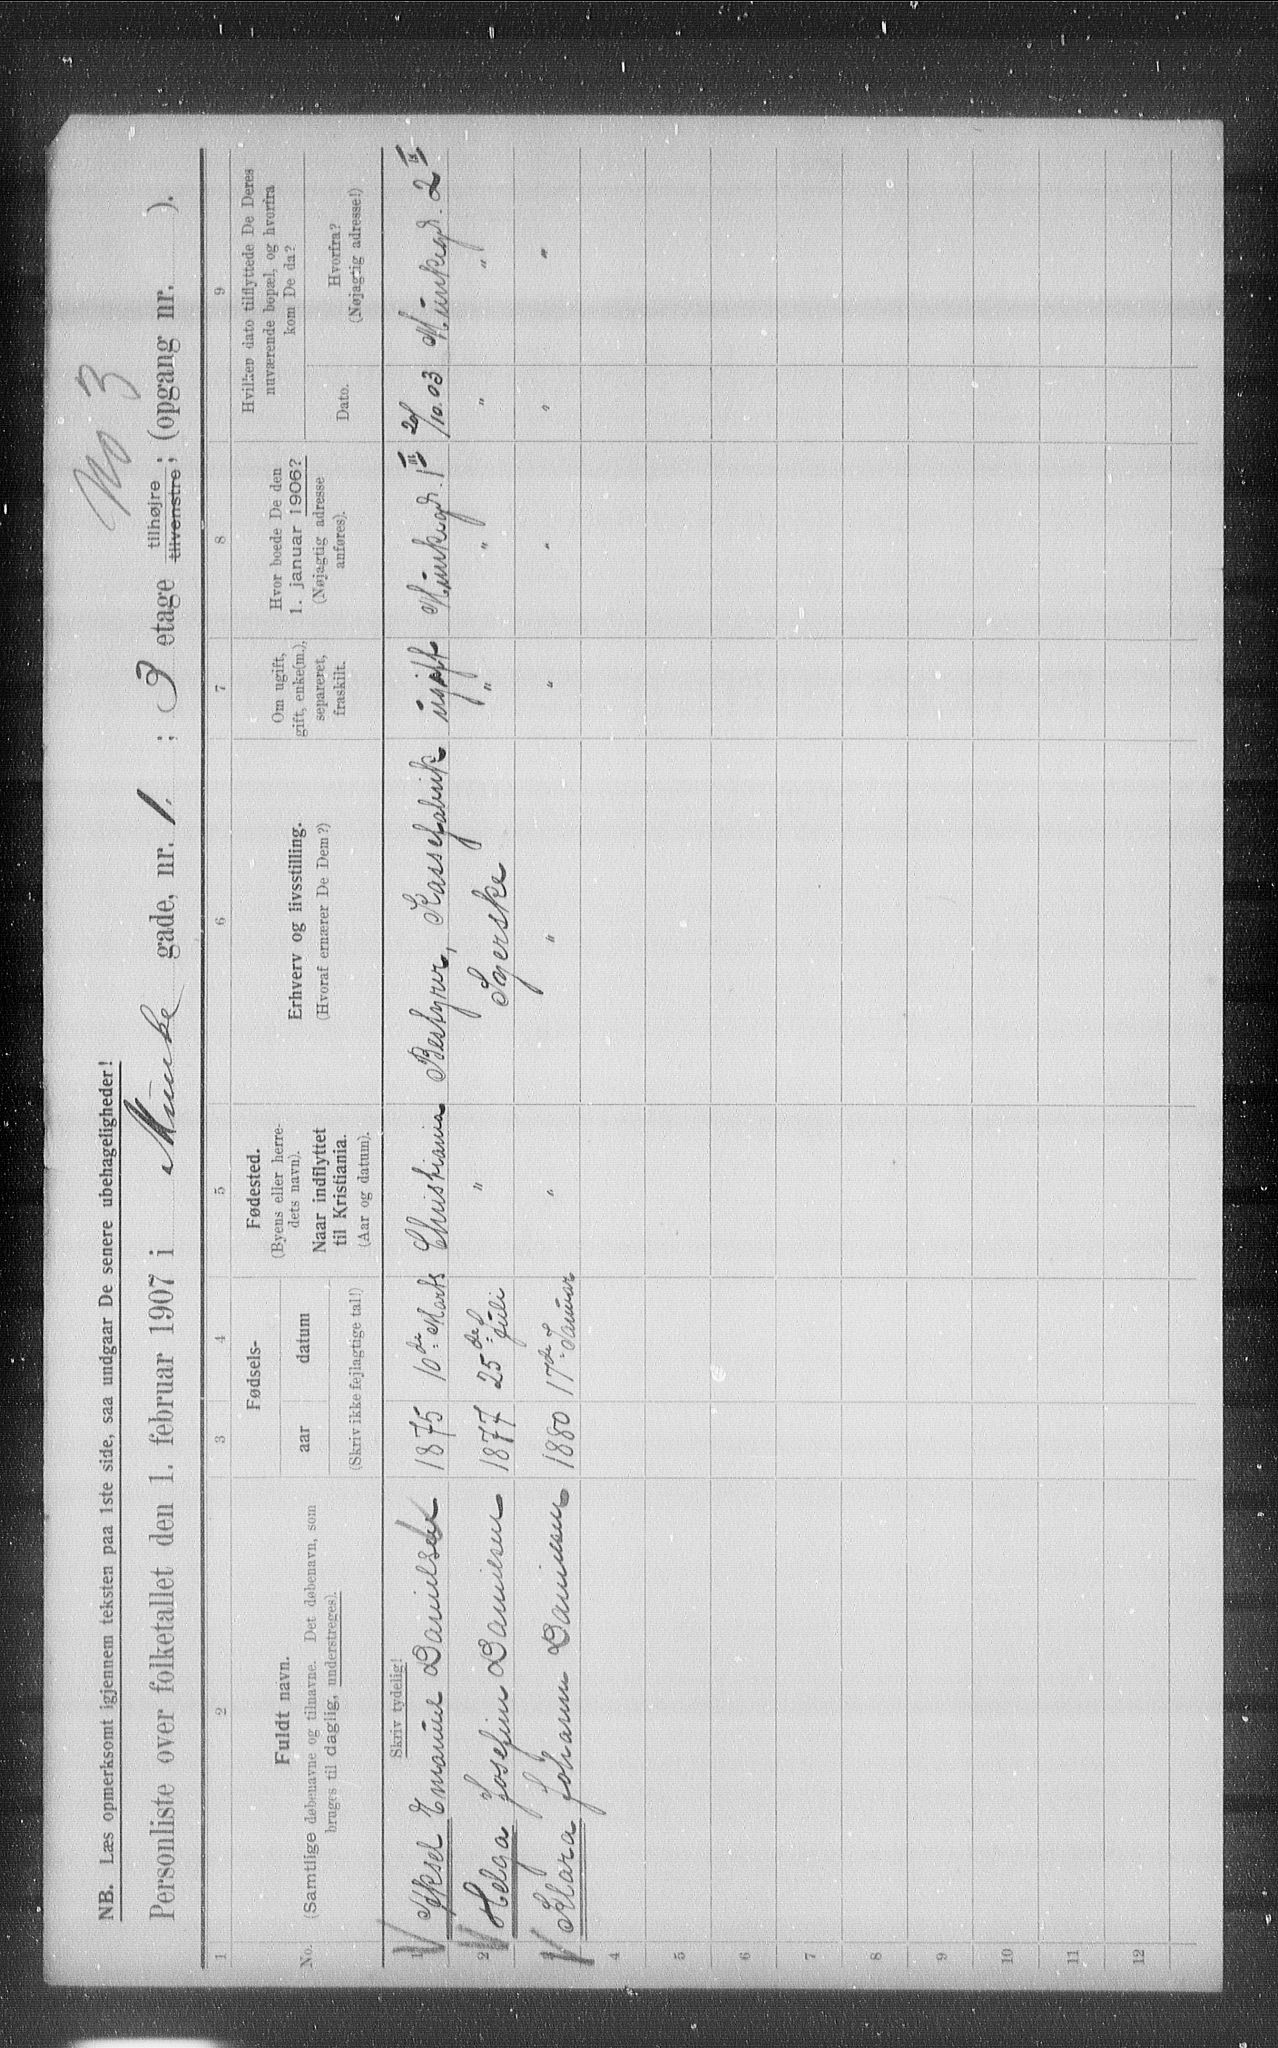 No 3
NB. Læs opmerksomt igjennem teksten paa 1ste side, saa undgaar De senere ubehageligheder!
Personliste over folketallet den 1. februar 1907 i Munke gade, nr. 1. ; 3 etage tilhøjre tilvenstre; (opgang nr. ).
1 2 3 4 5 6 7 8 9
No.
Fuldt navn.
(Samtlige døbenavne og tilnavne. Det døbenavn, som
bruges til daglig, understreges).
Fødsels-
aar datum
(Skriv ikke fejlagtige tal!)
Fødested.
(Byens eller herre-
dets navn).
Naar indflyttet
til Kristiania.
(Aar og datum).
Erhverv og livsstilling.
(Hvoraf ernærer De Dem?)
Om ugift,
gift, enke(m.),
separeret,
fraskilt.
Hvor boede De den
1. januar 1906?
(Nøjagtig adresse
anføres).
Hvilken dato tilflyttede De Deres
nuværende bopæl, og hvorfra
kom De da?
Dato.
Hvorfra?
(Nøjagtig adresse!)
Skriv tydelig!
1 Aksel Emanuel Danielsen 1875 10de Marts Christiania Bestyrer, Kassefabrik ugift Munkegd. 1 III 20/10.03 Munkegd. 2
2 Helga Josefine Danielsen 1877 25de Juli " Syerske " " " "
3 Klara Johanne Danielsen 1880 17de Januar " " " " " "
4
5
6
7
8
9
10
11
12